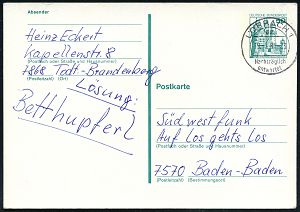 Absender
Heinz Eckert
Kapellenstr. 8
(Postfach oder Straße und Hausnummer)
7868 Todt-Brandenberg
(Postleitzahl) (Ort)
Lösung:
Betthupferl
DEUTSCHE BUNDESPOST
Postkarte
Südwestfunk
Auf Los gehts Los
(Postfach oder Straße und Hausnummer)
7570 Baden-Baden
(Postleitzahl) (Bestimmungsort)